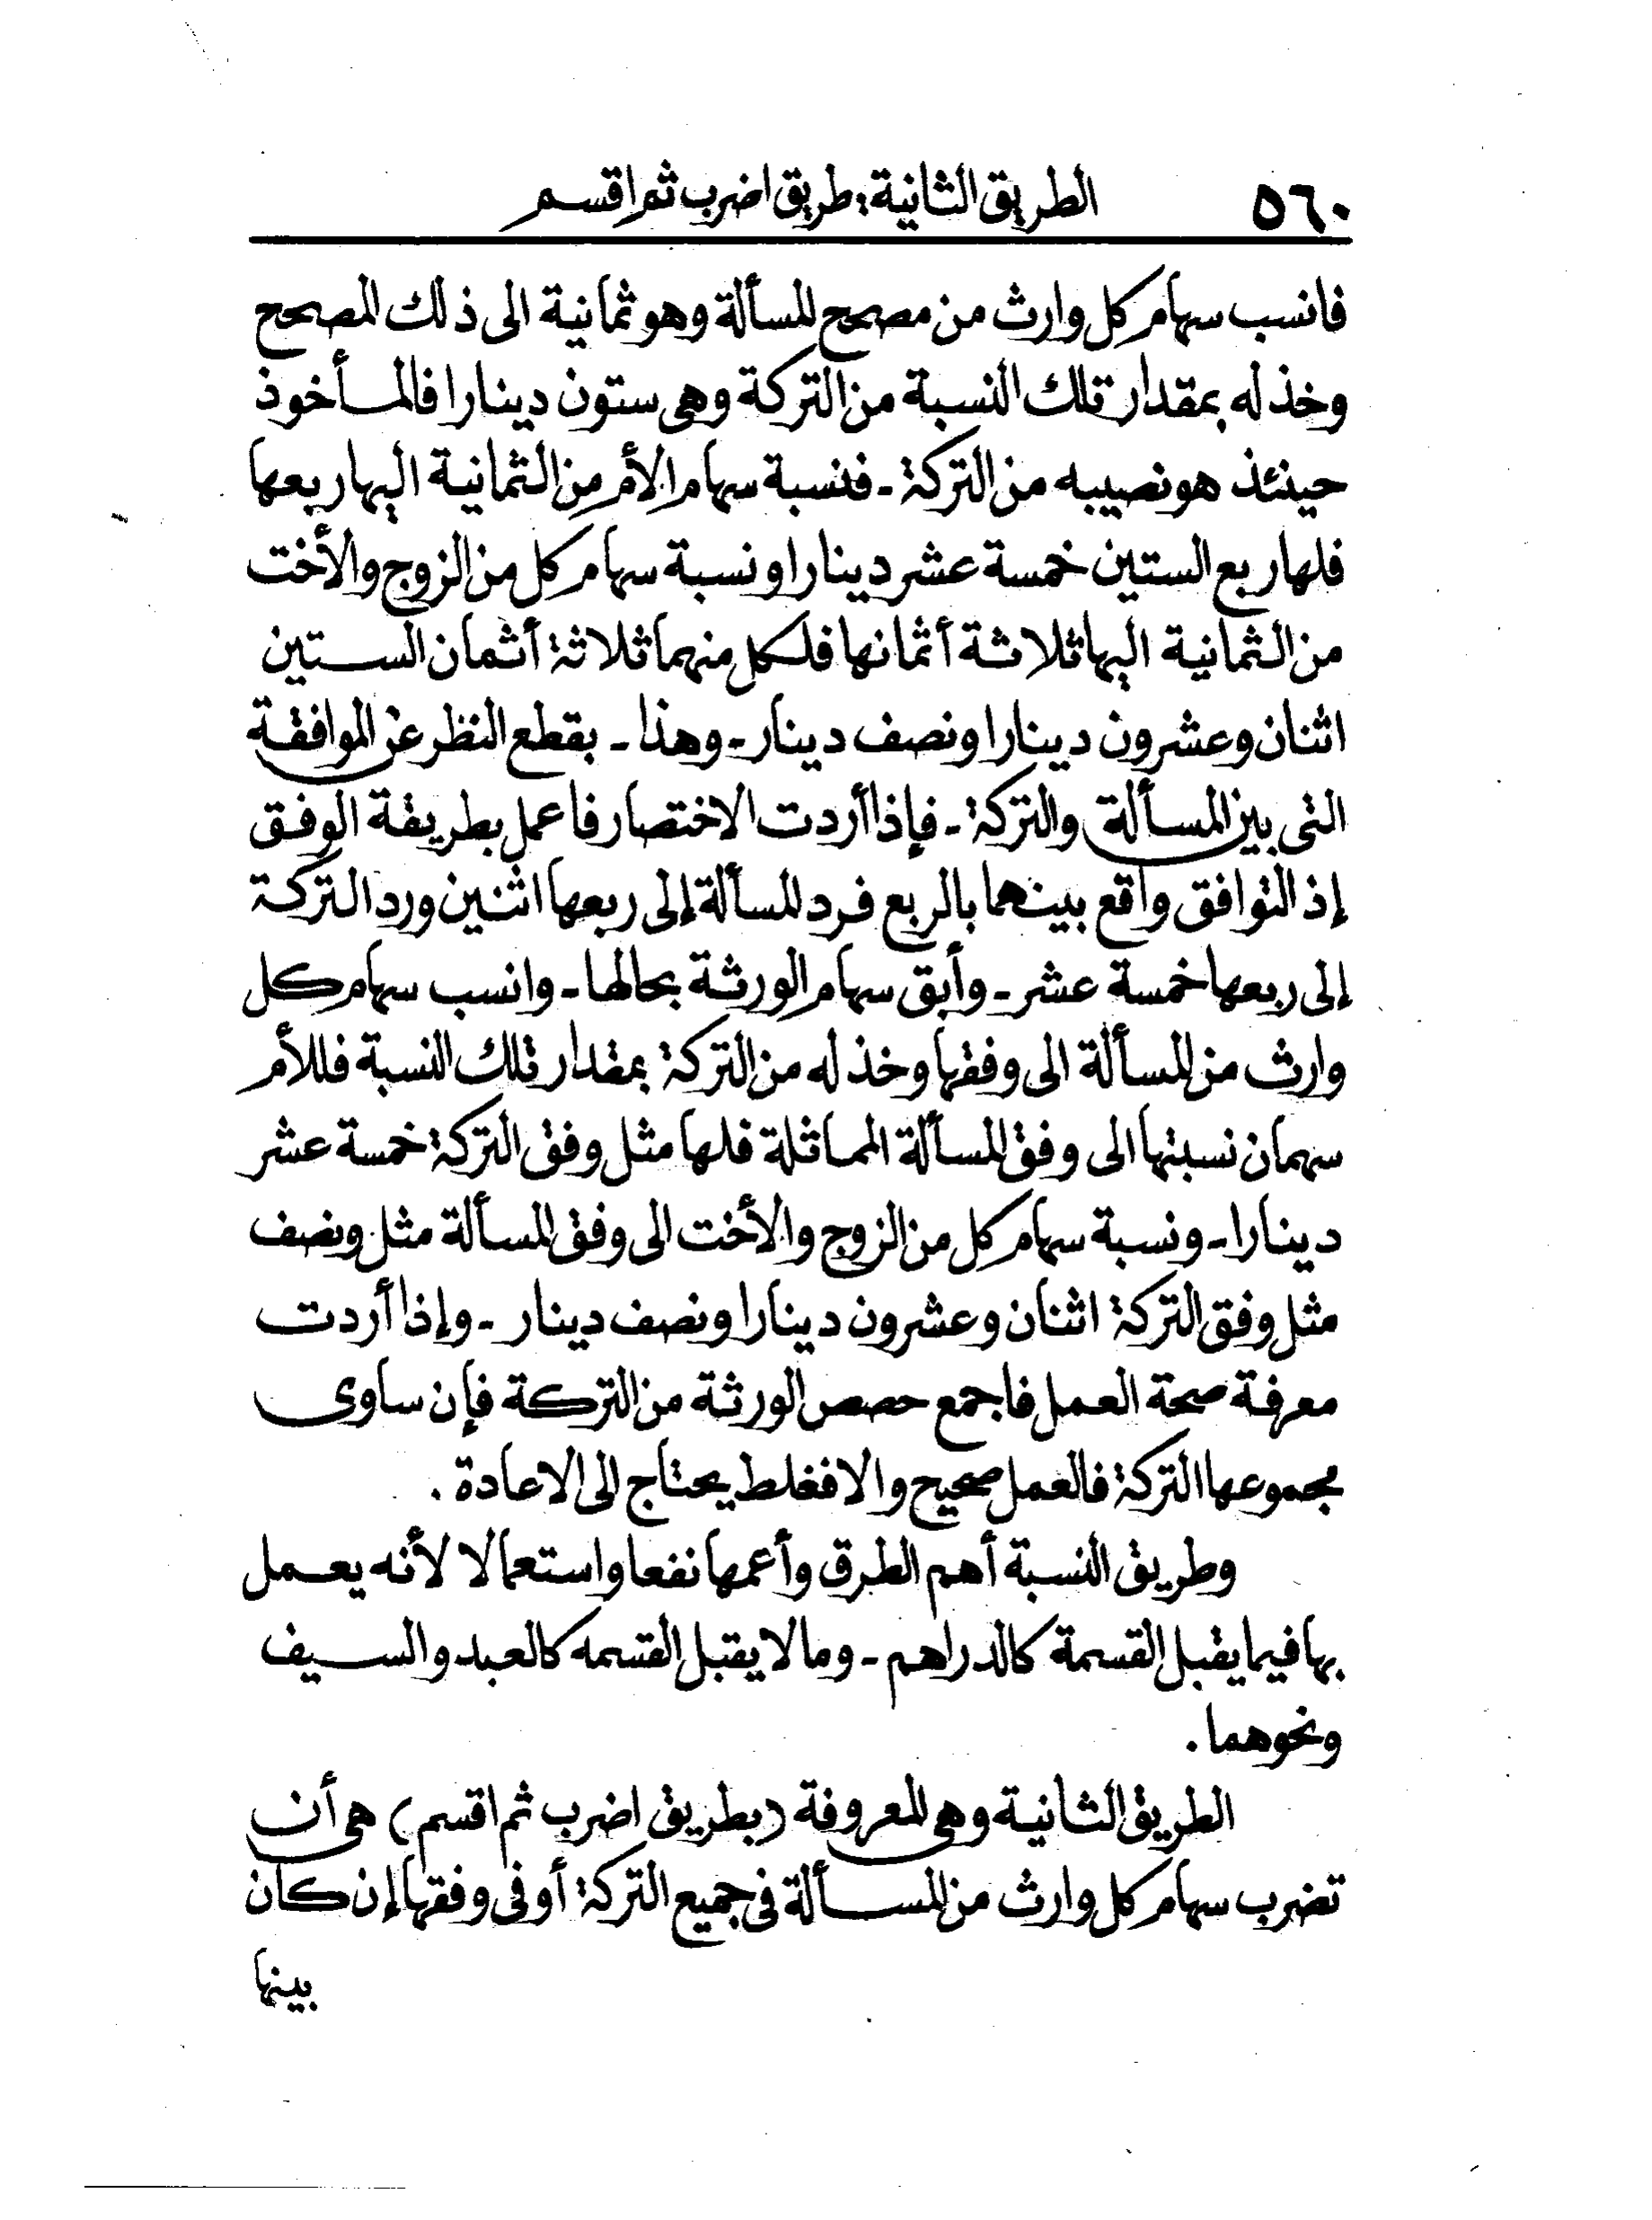 ٥٦٠ الطريق الثانية: طريق اضرب ثم اقسم
فانسب سهام كل وارث من مصحح المسألة وهو ثمانية الى ذلك المصحح
وخذ له بمقدار تلك النسبة من التركة وهى ستون دينارا فالمأخوذ
حينئذ هو نصيبه من التركة ـ فنسبة سهام الأم من الثمانية اليها ربعها
فلها ربع الستين خمسة عشر دينارا ونسبة سهام كل من الزوج والأخت
من الثمانية اليها ثلاثة أثمانها فلكل منهما ثلاثة أثمان الستين
اثنان وعشرون دينارا ونصف دينار ـ وهذا ـ بقطع النظر عن الموافقة
التى بين المسألة والتركة ـ فإذا أردت الاختصار فاعمل بطريقة الوفق
إذ التوافق واقع بينهما بالربع فرد المسألة إلى ربعها اثنين ورد التركة
إلى ربعها خمسة عشر ـ وأبق سهام الورثة بحالها ـ وانسب سهام كل
وارث من المسألة الى وفقها وخذ له من التركة بمقدار تلك النسبة فللأم
سهمان نسبتها الى وفق المسألة المماثلة فلها مثل وفق التركة خمسة عشر
دينارا ـ ونسبة سهام كل من الزوج والأخت الى وفق المسألة مثل ونصف
مثل وفق التركة اثنان وعشرون دينارا ونصف دينار ـ وإذا أردت
معرفة صحة العمل فاجمع حصص الورثة من التركة فإن ساوى
مجموعها التركة فالعمل صحيح والا فغلط يحتاج الى الاعادة .
وطريق النسبة أهم الطرق وأعمها نفعا واستعمالا لأنه يعمل
بها فيما يقبل القسمة كالدراهم ـ وما لا يقبل القسمه كالعبد والسيف
ونحوهما .
الطريق الثانية وهى المعروفة (بطريق اضرب ثم اقسم) هى أن
تضرب سهام كل وارث من المسألة فى جميع التركة أو فى وفقها إن كان
بينها